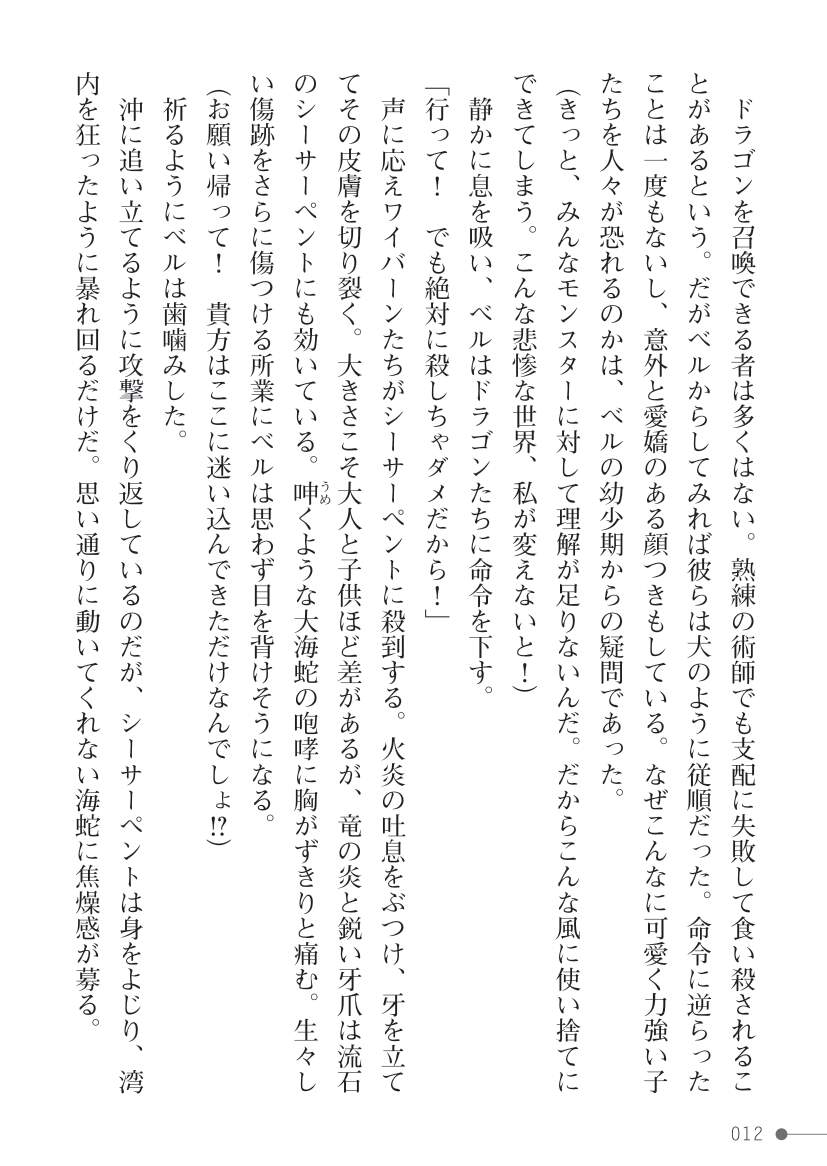 ドラゴンを召喚できる者は多くはない。熟練の術師でも支配に失敗して食い殺されるこ
とがあるという。だがベルからしてみれば彼らは犬のように従順だった。命令に逆らった
ことは一度もないし、意外と愛嬌のある顔つきもしている。なぜこんなに可愛く力強い子
たちを人々が恐れるのかは、ベルの幼少期からの疑問であった。
（きっと、みんなモンスターに対して理解が足りないんだ。だからこんな風に使い捨てに
できてしまう。こんな悲惨な世界、私が変えないと！）
　静かに息を吸い、ベルはドラゴンたちに命令を下す。
「行って！　でも絶対に殺しちゃダメだから！」
　声に応えワイバーンたちがシーサーペントに殺到する。火炎の吐息をぶつけ、牙を立て
てその皮膚を切り裂く。大きさこそ大人と子供ほど差があるが、竜の炎と鋭い牙爪は流石
のシーサーペントにも効いている。呻うめくような大海蛇の咆哮に胸がずきりと痛む。生々し
い傷跡をさらに傷つける所業にベルは思わず目を背けそうになる。
（お願い帰って！　貴方はここに迷い込んできただけなんでしょ!?）
　祈るようにベルは歯噛みした。
　沖に追い立てるように攻撃をくり返しているのだが、シーサーペントは身をよじり、湾
内を狂ったように暴れ回るだけだ。思い通りに動いてくれない海蛇に焦燥感が募る。
012